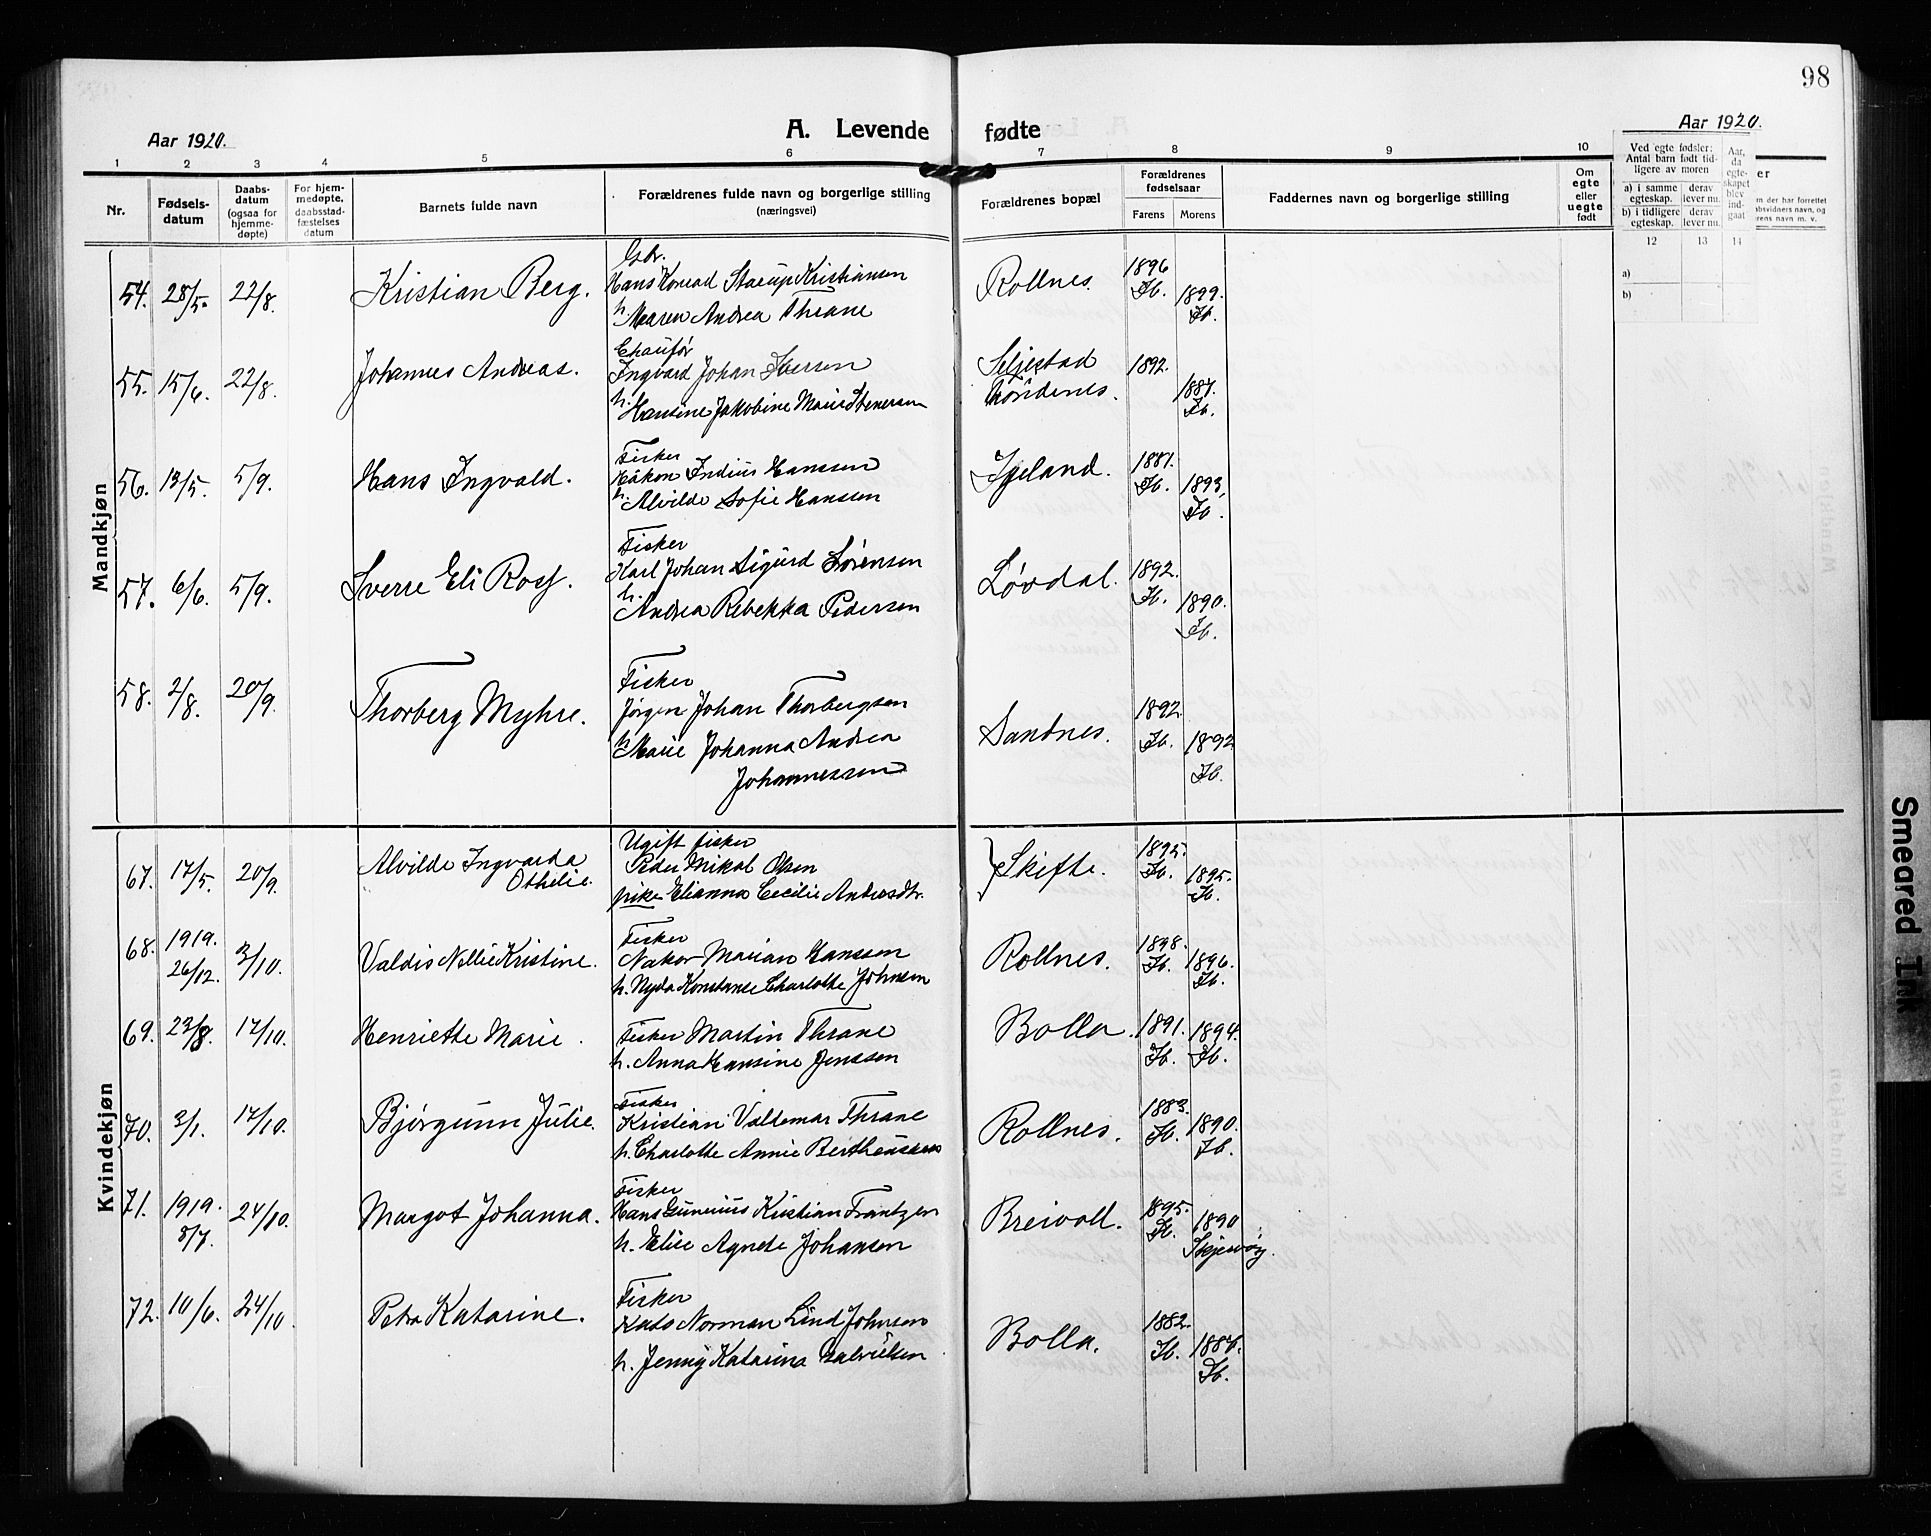 98
Aar 1920.
A. Levende
fødte
Aar 1920.
1 2 3 4 5 6 7 8 9 10
Nr.
Fødsels-
datum
Daabs-
datum
(ogsaa for
hjemme-
døpte)
For hjem-
medøpte,
daabsstad-
fæstelses
datum
Barnets fulde navn
Forældrenes fulde navn og borgerlige stilling
(næringsvei)
Forældrenes bopæl
Forældrenes
fødselsaar
Farens Morens
Faddernes navn og borgerlige stilling
Om
egte
eller
uegte
født
Ved egte fødsler:
Antal barn født tid-
ligere av moren
a) i samme
egteskap.
derav
lever nu.
b) i tidligere
egteskap.
derav
lever nu.
Aar,
da
egte-
skapet
blev
ind-
gaat
12 13 14
a)
b)
Mandkjøn
54. 28/5. 22/8. Kristian Berg.
Gbr.
Hans Konrad Starup Kristiansen
h. Maren Andrea Thrane
Rollnes. 1896 Ib. 1899. Ib.
55. 15/6. 22/8. Johannes Andreas.
Chaufør
Ingvard Johan Iversen
h. Hansine Jakobine Marie Stenersen
Seljestad
Trondenes. 1892. 1887. Ib.
56. 13/5. 5/9. Hans Ingvald.
Fisker
Håkon Indius Hanssen
h. Alvilde Sofie Hanssen
Igeland. 1881. Ib. 1893, Ib.
57. 6/6. 5/9. Sverre Eli Ross.
Fisker
Karl Johan Sigurd Sørensen
h. Andrea Rebekka Pedersen
Løvdal. 1892. Ib. 1890. Ib.
58. 2/8. 20/9. Thorberg Myhre.
Fisker
Jørgen Johan Thorbergsen
h. Marie Johanna Andrea
Johannessen
Sandnes. 1892. Ib. 1892 Ib.
Kvindekjøn
67. 17/5. 20/9. Alvilde Ingvarda
Othelie.
Ugift fisker
Peder Mikal Olsen
pike Elianna Cecilie Andersdtr.
Skifte. 1895. Ib. 1895. Ib.
68. 1919. 26/12. 3/10. Valdis Nellie Kristine.
Fisker
Nakor Marian Hanssen
h. Nyda Konstanse Charlotte Johnsen
Rollnes. 1898. Ib. 1896. Ib.
69. 23/8. 17/10. Henriette Marie.
Fisker Martin Thrane
h. Anna Hansine Jenssen
Bolla. 1891. Ib. 1894. Ib.
70. 3/1. 17/10. Bjørgunn Julie.
Fisker
Kristian Valdemar Thrane
h. Charlotte Annie Bertheussen
Rollnes. 1883. Ib. 1890. Ib.
71. 1919. 8/7. 24/10. Margot Johanna.
Fisker
Hans Gunerius Kristian Frantzen
h. Elise Agnete Johansen
Breivoll. 1895. Ib. 1890 Skjervøy.
72. 10/6. 24/10. Petra Katarine.
Fisker
Kato Norman Lind Johnsen
h. Jenny Katarina Gabrielsen
Bolla. 1882. Ib. 1884. Ib.
Smeared Ink